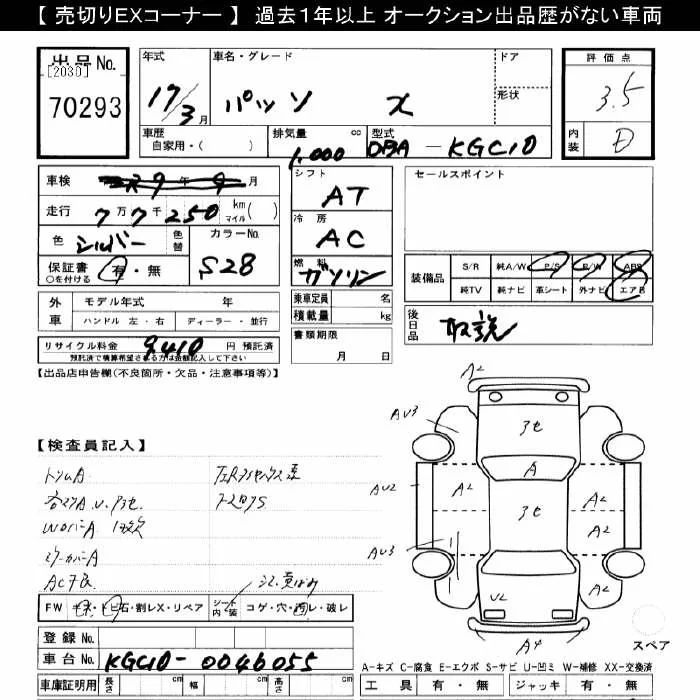 【 売切りEXコーナー 】 過去1年以上 オークション出品歴がない車両
出品No.
[2030]
70293
年式
17/3月
車名・グレード
パッソ X
ドア
形状
評価点
3.5
車歴
自家用・( )
排気量 cc
1,000
型式
DBA - KGC10
内装
D
車検 年 月
走行 7万7千250 km マイル ( )
色 シルバー 色替
カラーNo.
S28
保証書 有・無
○を付ける
シフト
AT
冷房
AC
燃料
ガソリン
乗車定員 名
積載量 kg
書類期限
月 日
セールスポイント
装備品
S/R 純A/W P/S P/W ABS
純TV 純ナビ 革シート 外ナビ エアB
後日品
取説
外車
モデル年式 年
ハンドル 左・右 ディーラー・並行
リサイクル料金 9,410 円 預託済
預託済で積算希望される方は金額記入して下さい
【出品店申告欄(不良箇所・欠品・注意事項等)】
【検査員記入】
トリムA
WOバーA
ミラーカバーA
AC不良
FW キズ・トビ石・割レX・リペア
シート内装 コゲ・穴・西レ・破レ
登録No.
車台No. KGC10-0046055
車庫証明用 長さ cm 幅 cm 高さ cm
A2
AU3
アセ
A
A2
AU2
アセ
A2
A2
AU3
A2
U2
A4
スペア
A-キズ C-腐食 E-エクボ S-サビ U-凹ミ W-補修 XX-交換済
工具 有・無 ジャッキ 有・無